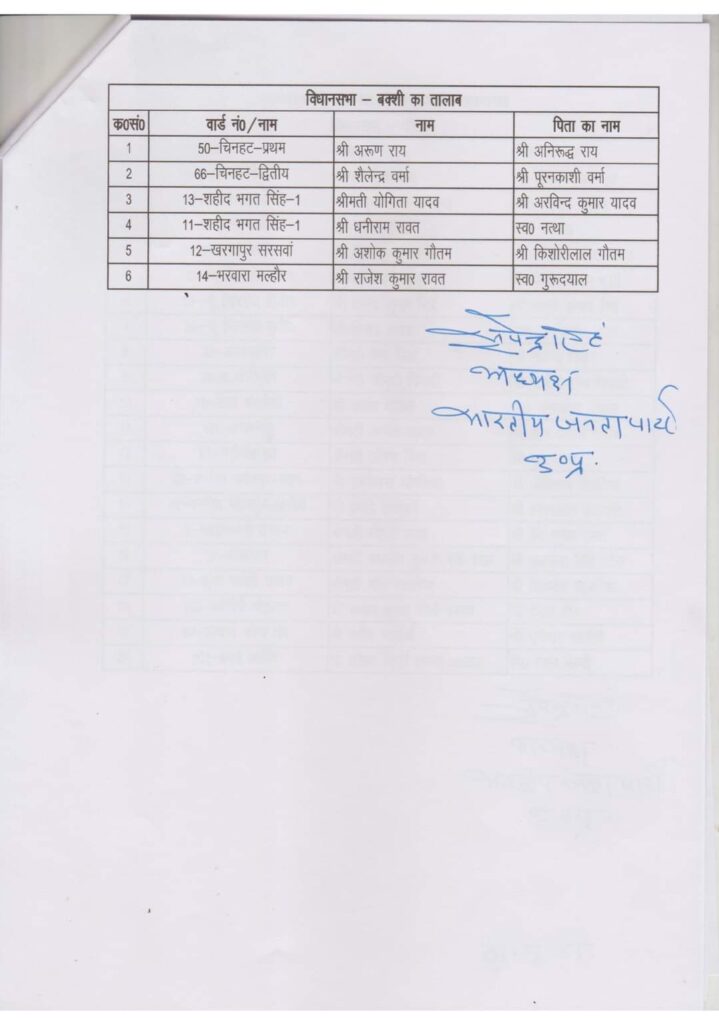 विधानसभा – बक्शी का तालाब
क0सं0 वार्ड नं0/नाम नाम पिता का नाम
1 50–चिनहट–प्रथम श्री अरूण राय श्री अनिरूद्ध राय
2 66–चिनहट–द्वितीय श्री शैलेन्द्र वर्मा श्री पूरनकाशी वर्मा
3 13–शहीद भगत सिंह–1 श्रीमती योगिता यादव श्री अरविन्द कुमार यादव
4 11–शहीद भगत सिंह–1 श्री धनीराम रावत स्व0 नत्था
5 12–खरगापुर सरसवां श्री अशोक कुमार गौतम श्री किशोरीलाल गौतम
6 14–भरवारा मल्हौर श्री राजेश कुमार रावत स्व0 गुरूदयाल
अध्यक्ष
भारतीय जनता पार्टी
उ०प्र.